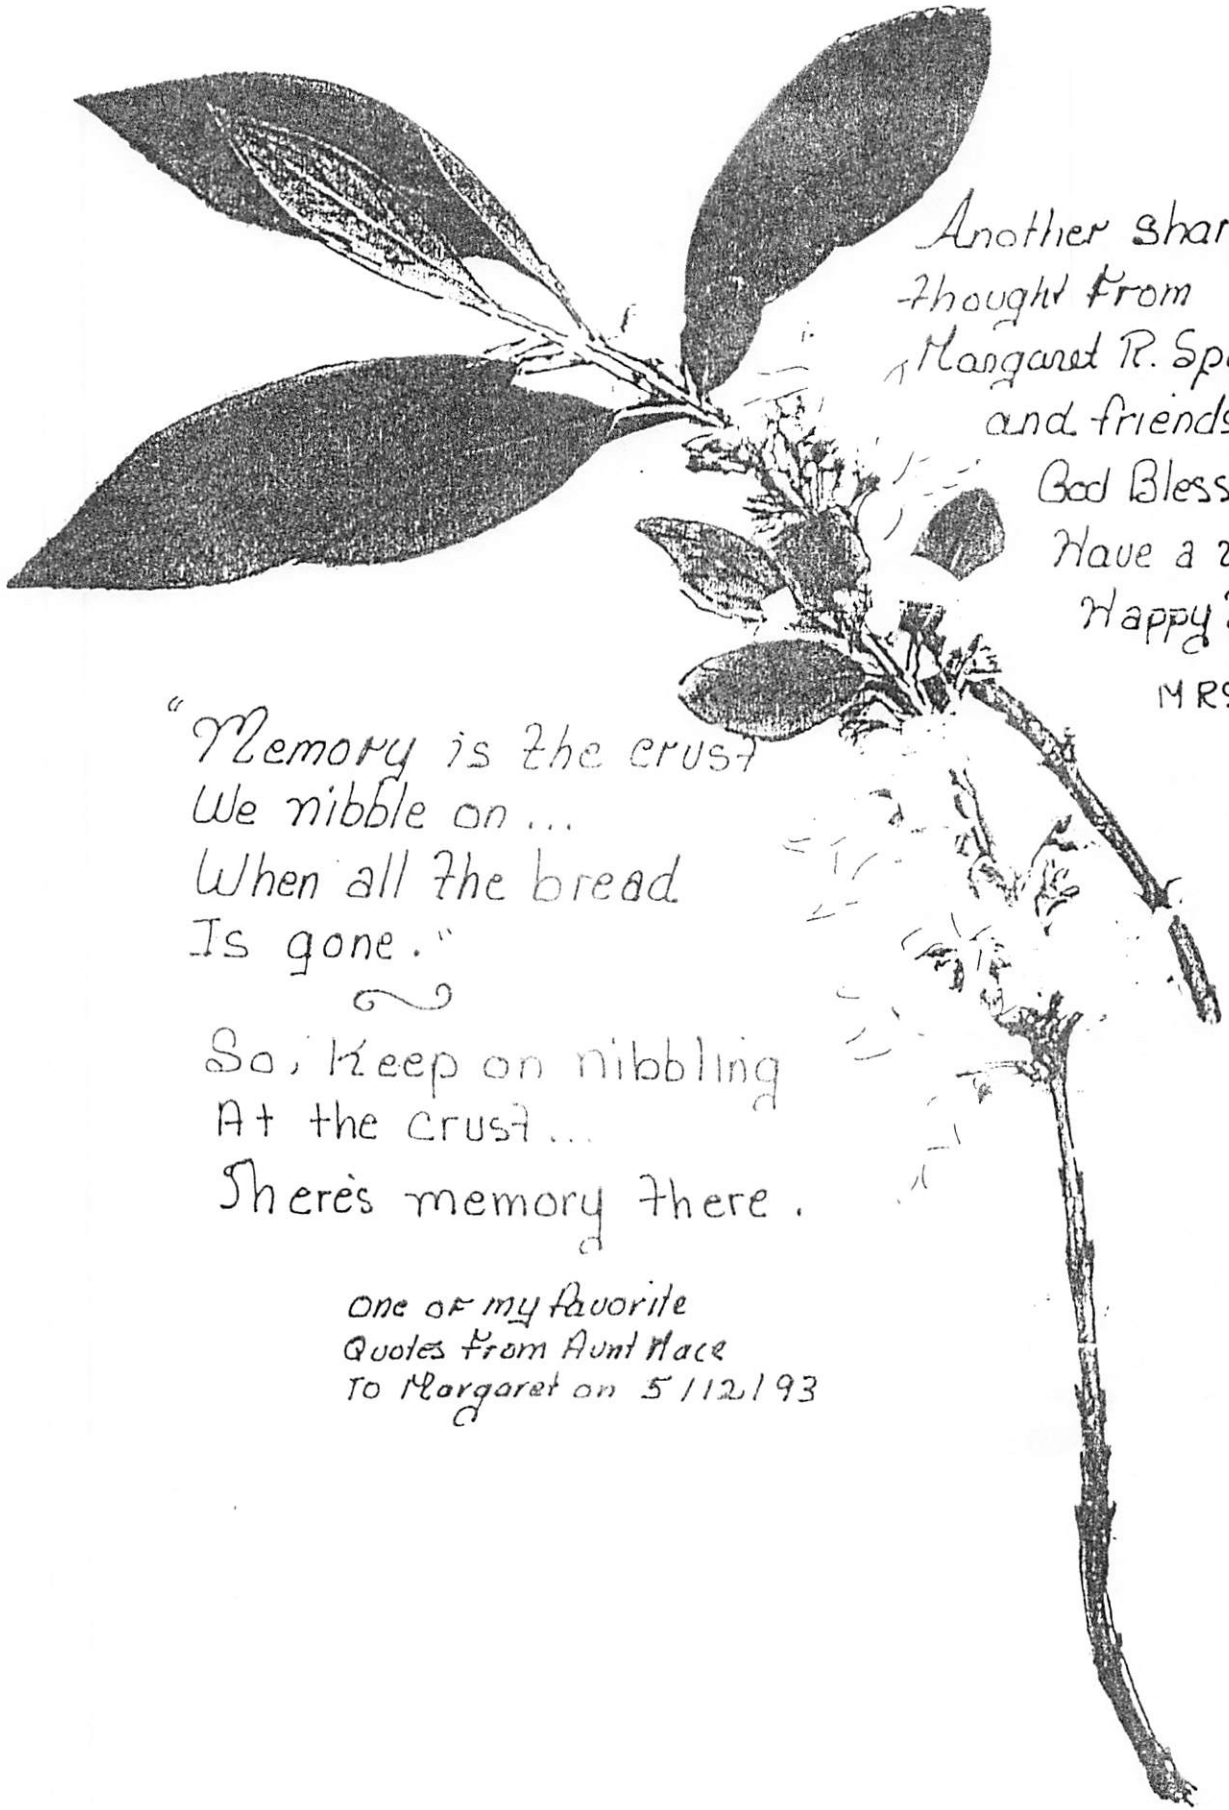 Another shar
thought From
Margaret R. Sp
and friends
God Bless
Have a
Happy
MRS
"Memory is the crust
We nibble on...
When all the bread
Is gone."
So, Keep on nibbling
At the crust...
There's memory there.
One of my favorite
Quotes From Aunt Mace
To Margaret on 5/12/93